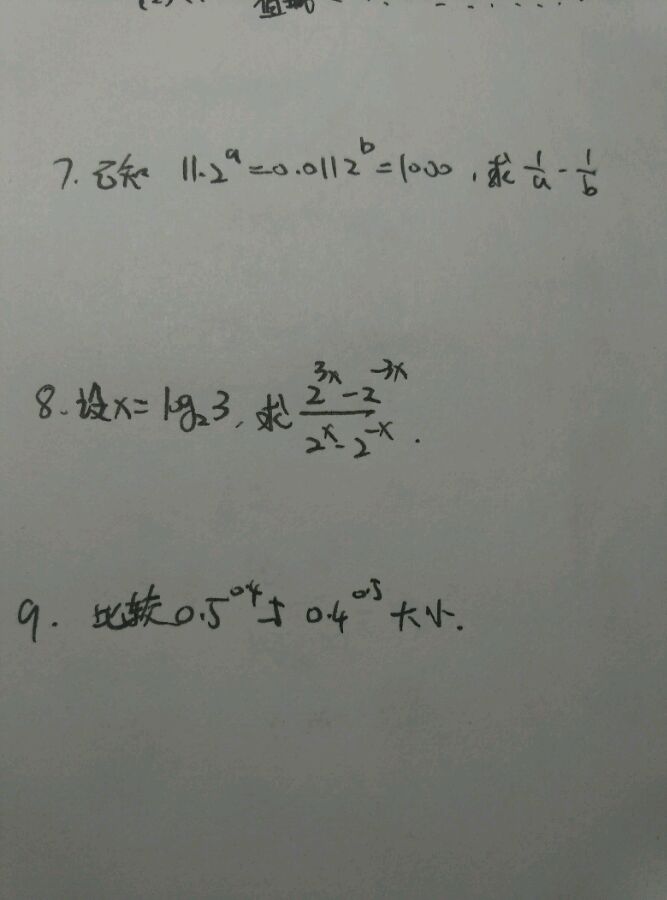 7. 已知 11.2^a=0.0112^b=1000,求 1/a - 1/b
8. 设x=log₂3,求 (2^{3x}-2^{-3x})/(2^x-2^{-x}).
9. 比较0.5^{0.4}与 0.4^{0.5}大小.